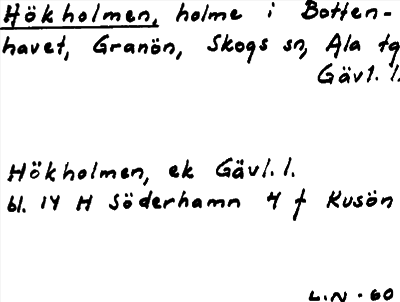 Hökholmen, holme i Botten-
havet, Granön, Skogs sn, Ala tg
Gävl. l.
Hökholmen, ek Gävl. l.
bl. 14 H Söderhamn 4 f Kusön
L.N - 60